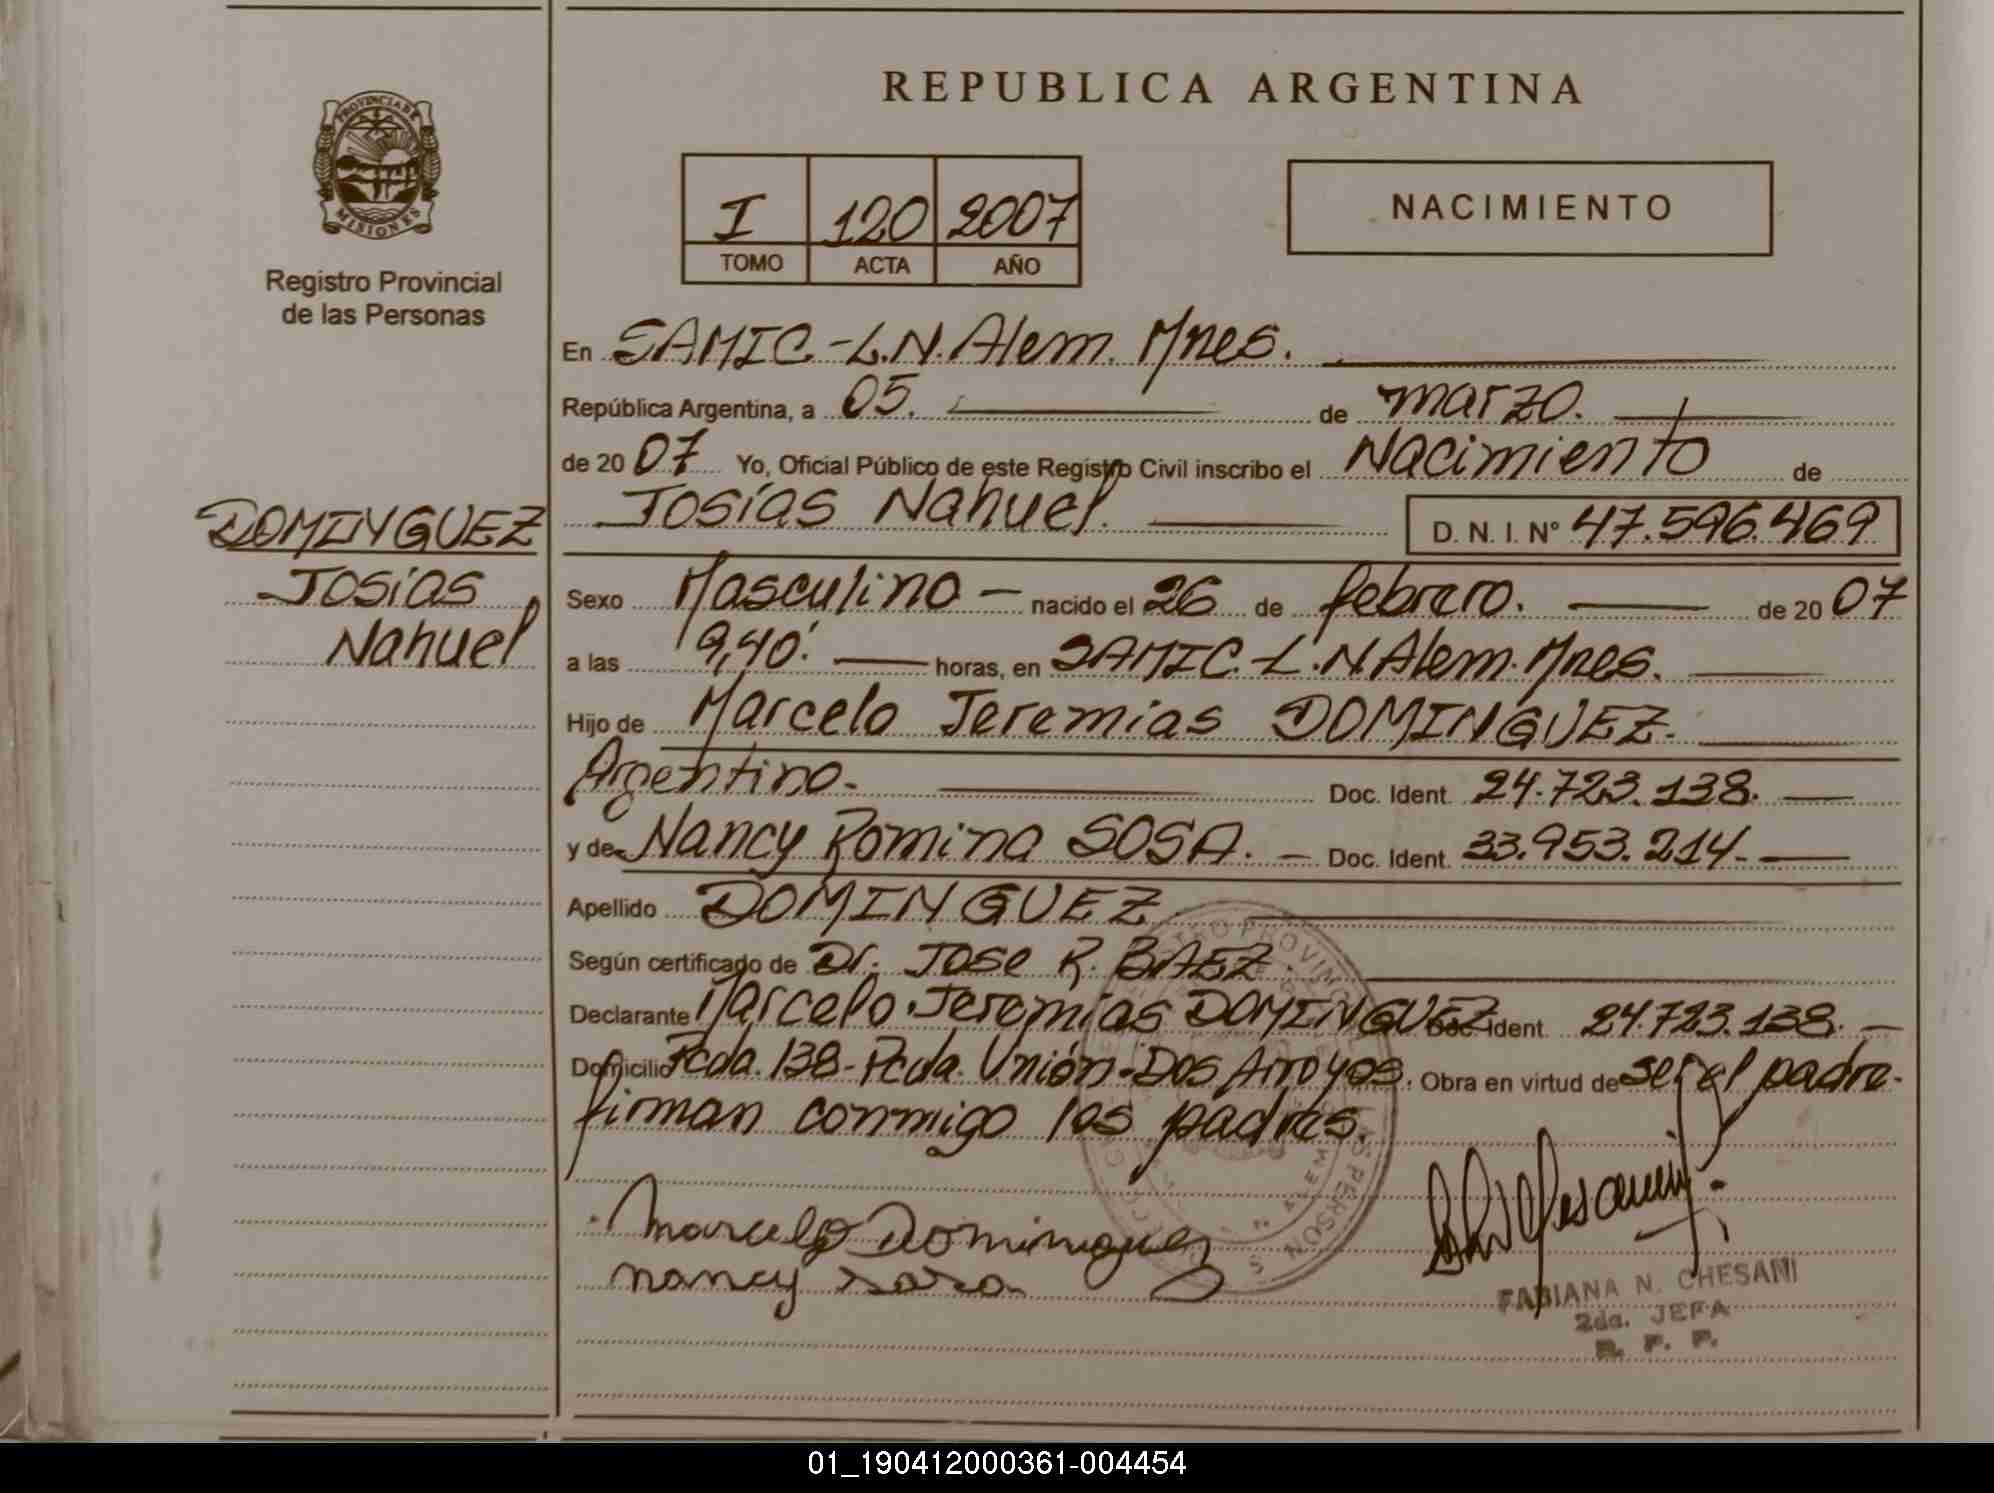 REPUBLICA ARGENTINA
PROVINCIA DE
MISIONES
Registro Provincial
de las Personas
I 120 2007
TOMO ACTA AÑO
NACIMIENTO
En SAMIC.-L.N.Alem. Mnes.
República Argentina, a 05. de marzo.
de 20 07 Yo, Oficial Público de este Registro Civil inscribo el Nacimiento de
Josías Nahuel. D. N. I. Nº 47.596.469
DOMINGUEZ
Josías
Nahuel
Sexo Masculino - nacido el 26 de febrero. de 20 07
a las 9,40'. horas, en SAMIC.-L.N Alem. Mnes.
Hijo de Marcelo Jeremías DOMINGUEZ.
Argentino.- Doc. Ident. 24.723.138.
y de Nancy Romina SOSA. - Doc. Ident. 33.953.214.-
Apellido DOMINGUEZ
Según certificado de Dr. Jose R. BAEZ.
Declarante Marcelo Jeremías DOMINGUEZ Doc. Ident. 24.723.138.
Domicilio Pcda. 138-Pcda. Unión-Dos Arroyos. Obra en virtud de ser el padre.
firman conmigo los padres.
Marcelo Dominguez
nancy sosa
FABIANA N. CHESANI
2da. JEFA
R. P. P.
01_190412000361-004454